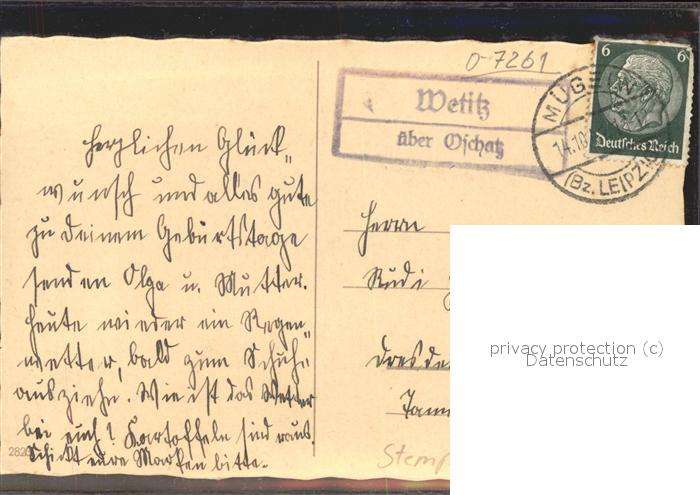 O-7261
Wetitz
über Oschatz
MÜGELN
14.10
(Bz. LEIPZIG)
6 6
Deutsches Reich
Herzlichen Glück„
wunsch und alles gute
zu Deinem Geburtstage
senden Olga u. Mutter.
Heute wieder ein Regen„
wetter, bald zum Schuh„
ausziehn. Wie ist das Wetter
bei euch! Kartoffeln sind raus.
Schickt eure Marken bitte.
Herrn
Rudi
Dresde
Stemp
privacy protection (c)
Datenschutz